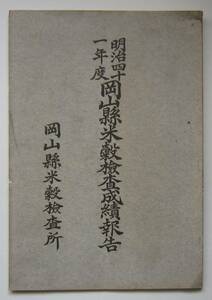 明治四十
一年度
岡山縣米穀檢査成績報告
岡山縣米穀檢査所